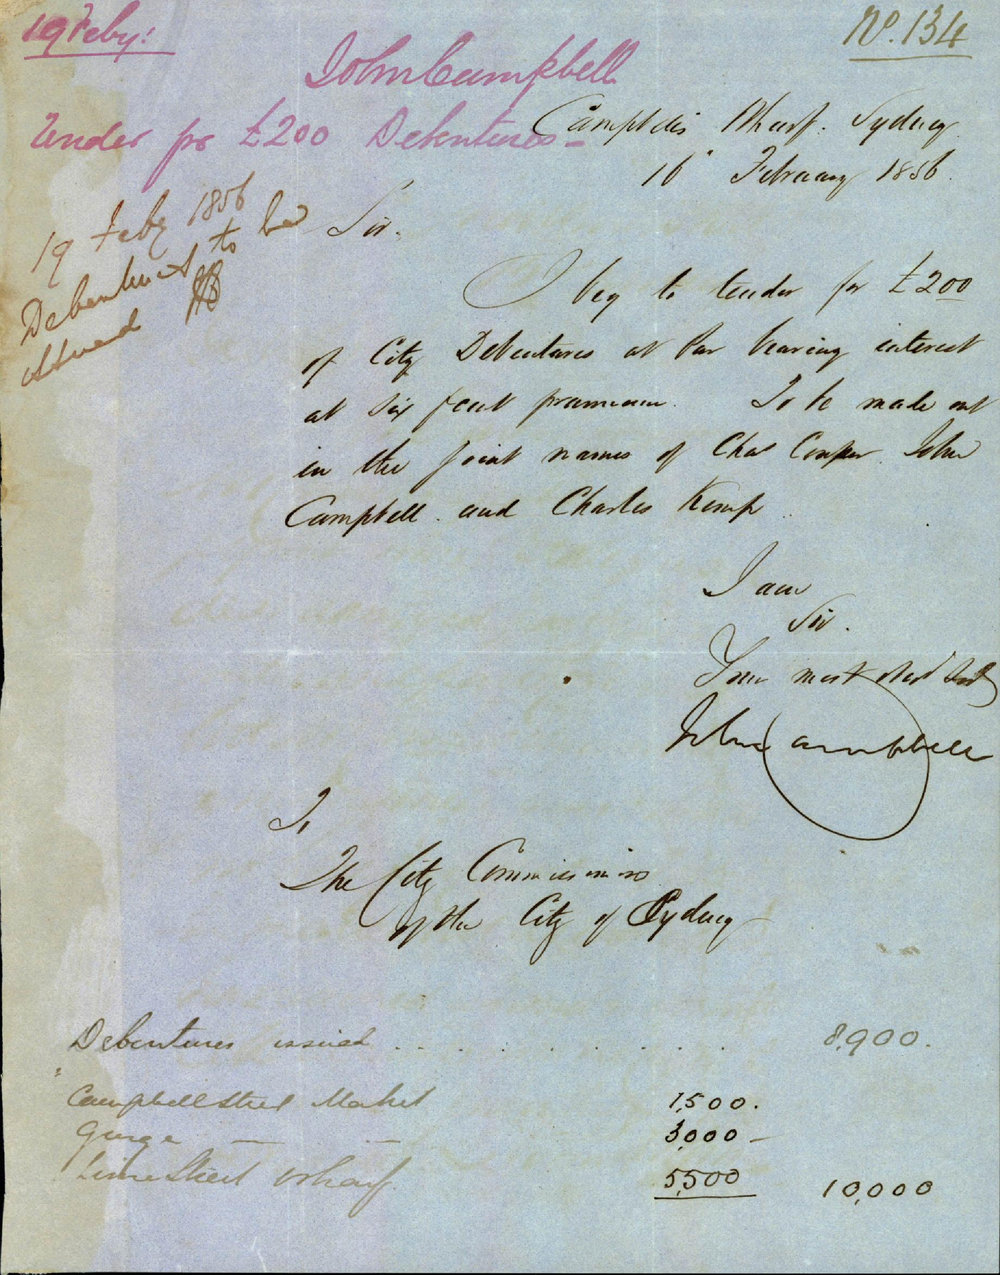 19 Feby:
No. 134
John Campbell
Tender for £200 Debentures -
Campbells Wharf. Sydney
16" February 1856.
19 Feby 1856
Debentures to be
issued
Sir.
I beg to tender for £200
of City Debentures at par bearing interest
at six p cent p annum. To be made out
in the joint names of Chas Cowper John
Campbell and Charles Kemp
I am
Sir.
Your most obed Servt
John Campbell
To
The City Commissioners
of the City of Sydney
Debentures issued . . . . . . . . . 8,900.
" Campbell Street Market 1,500.
George — — 3,000 —
Lime Street Wharf. 5,500 10,000